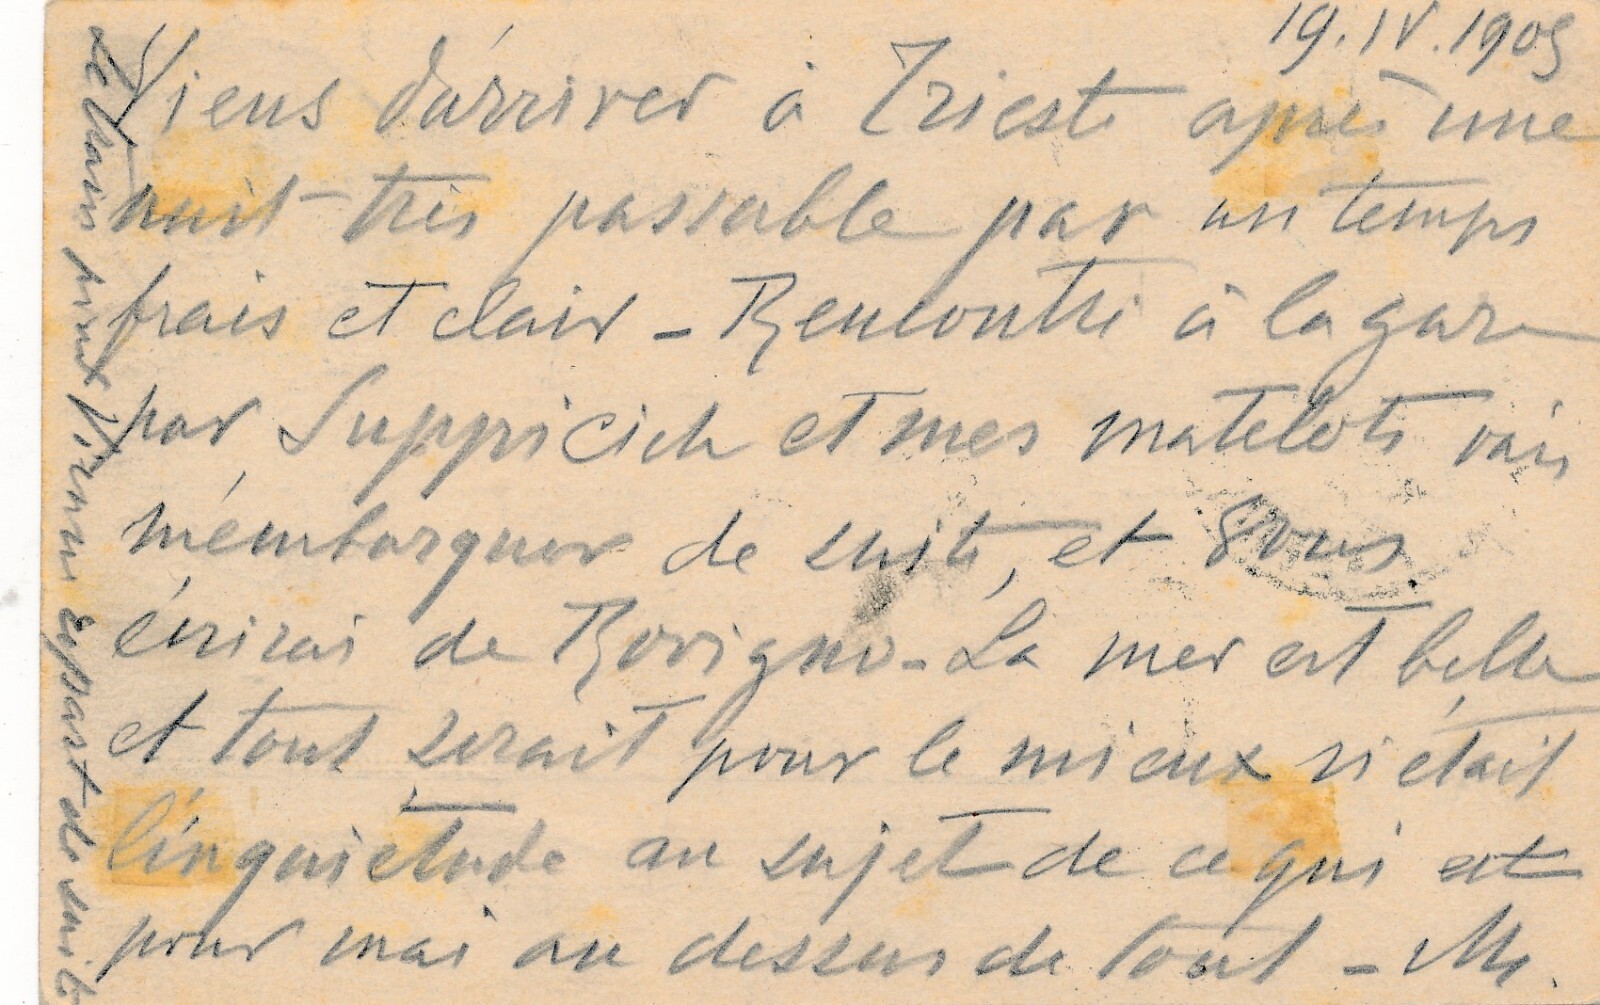 19.IV.1905
Viens d'arriver à Trieste après une
nuit très passable par un temps
frais et clair – Rencontré à la gare
par Suppicich et mes matelots vais
m'embarquer de suite, et vous
écrirai de Rovigno – La mer est belle
et tout serait pour le mieux si c'était
l'inquiétude au sujet de ce qui est
pour moi au dessus de tout – M.
Le train pour Vienne repart de suite